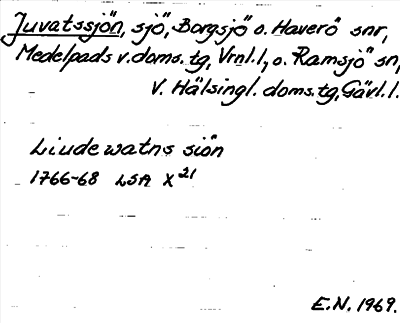 Juvatssjön, sjö, Borgsjö o. Haverö snr,
Medelpads v. doms. tg, Vrnl. l, o. Ramsjö sn,
V. Hälsingl. doms. tg, Gävl. l.
Liudewatns siön
1766-68 LSA X²¹
E.N. 1969.